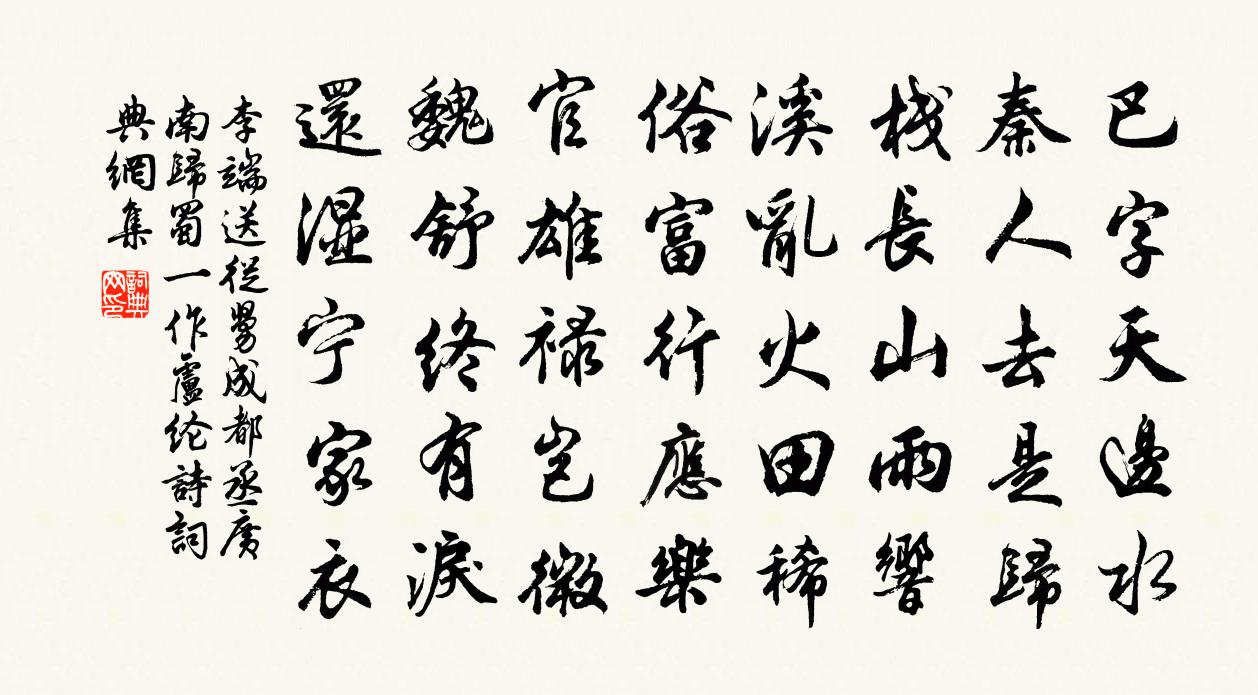 巴字天邊水
秦人去是歸
棧長山雨響
溪亂火田稀
俗富行應樂
官雄禄岂微
魏舒终有淚
還湿宁家衣
李端送從舅成都丞廣
南歸蜀一作盧纶詩詞
典網集
詞典网印